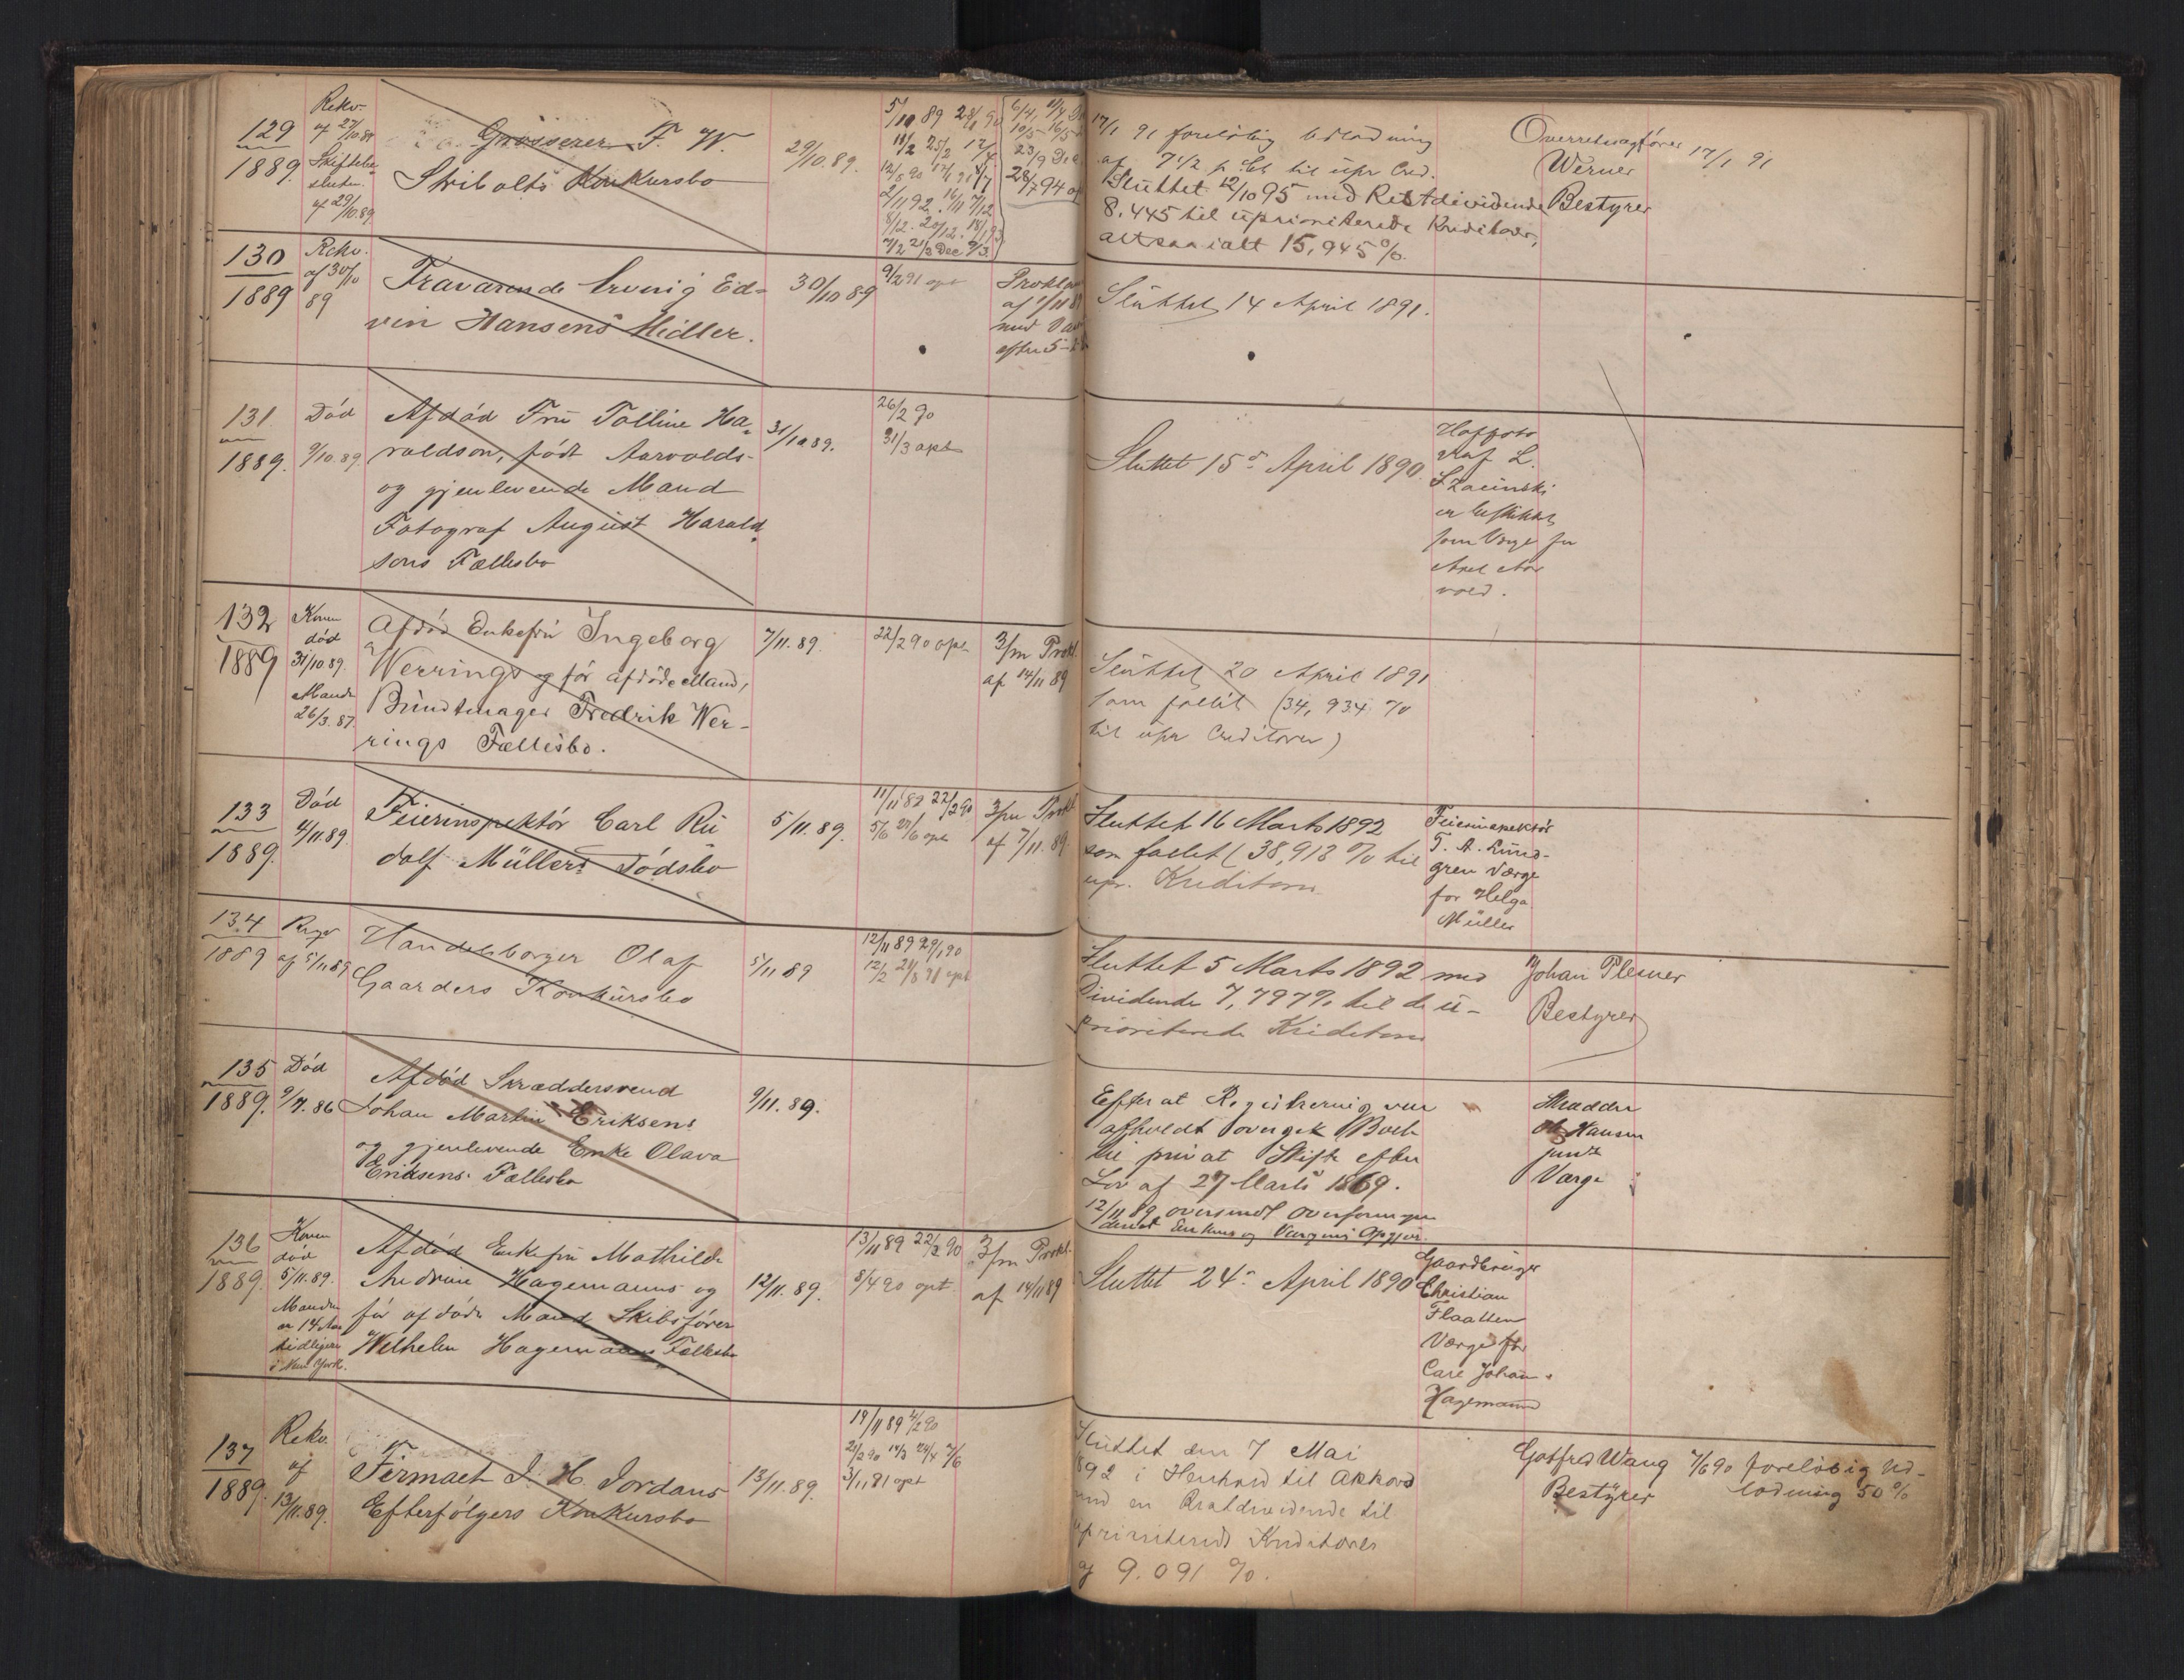 129
1889.
Rekv.
af 27/10.89
Skiftebe=
slutn.
af 29/10.89
Grosserer F. W.
Stribolts Konkursbo
29/10.89.
5/11 89
28/7 94
17/1 91 foreløbig Udlodning
af 7 1/2 p Ct. til upr Cred.
Sluttet 12/10 95 med Restdividende
8.445 til uprioriterede Kreditorer,
altsaa ialt 15,945 %.
Overretssagfører
Werner
Bestyrer
17/1 91
130
1889
Rekv.
af 30/10
89
Fraværende Ervenig Ed=
vin Hansens Midler.
30/10 89
9/2 91 opt
Proklama
af 1/11 89
med Var
efter 5
Sluttet 14 April 1891.
131
1889.
Død
9/10.89.
Afdød Fru Talline Ha=
raldson, født Aarvolds-
og gjenlevende Mand
Fotograf August Harald
sons Fællesbo
31/10 89.
26/2 90
31/3 opt
Sluttet 15de April 1890.
Hoffoto
graf L.
Szacinski
er beskikket
som Værge for
Axel Aar
vold.
132
1889
Konen
død
31/10 89.
Manden
26/3.87.
Afdød Enkefru Ingeborg
Werrings og før afdøde Mand,
Bundtmager Fredrik Wer-
rings Fællesbo.
7/11.89.
22/2 90 opt
3/m Prokl.
af 14/11 89
Sluttet 20 April 1891
som fallit (34,934 %
til upr Creditorer)
133
1889.
Død
4/11.89.
Feierinspektør Carl Ru
dolf Müllers Dødsbo
5/11.89.
11/11 89 22/2 90
3/m Prokl
af 7/11.89.
Sluttet 16 Marts 1892
som fallit (38,913 % til
upr. Kreditorer
Feierinspektør
T. A. Lund-
gren Værge
for Helga
Müller
134
1889
Rqv
af 5/11 89
Handelsborger Olaf
Gaarders Konkursbo
5/11 89
12/11 89 29/1 90
Sluttet 5 Marts 1892 med
Dividende 7,797% til de u-
prioriterede Kreditorer
Johan Plesner
Bestyrer
135
1889.
Død
9/7.86
Afdød Skræddersvend
Johan Martin Eriksens
og gjenlevende Enke Olava
Eriksens Fællesbo
9/11.89.
Efter at Registrering var
afholdt overgik Boet
til privat Skifte efter
Lov af 27 Marts 1869.
12/11 89 oversendt Overformyn
deriet Enkens og Værgens Opgjør.
Skrædder
Ole Hansen
junr
Værge
136
1889.
Konen
død
5/11.89.
Manden
er 14 Aar
tidligere
i New York.
Afdød Enkefru Mathilde
Andrine Hagemanns og
før afdøde Mand Skibsfører
Wilhelm Hagemanns Fællesbo
12/11.89.
13/11 89 22/2 90
8/4 90 opt
3/m Prokl.
af 14/11 89
Sluttet 24de April 1890
Gaardbruger
Christian
Flaatten
Værge for
Carl Johan
Hagemann
137
1889.
Rekv.
af
13/11.89.
Firmaet J. H. Jordans
Efterfølgers Konkursbo
13/11.89.
19/11 89 4/2 90
Sluttet den 7 Mai
1892 i Henhold til Akkord
med en Restdividende til
uprioriterede Kreditorer
af 9.091 %.
Gotfred Wang
Bestyrer
7/6 90 foreløbig Ud-
lodning 50 %